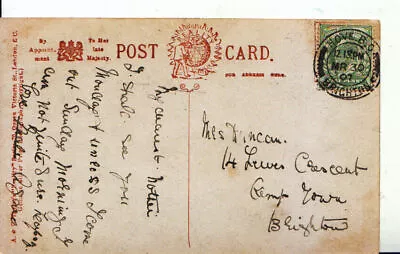 By
Appoint-
ment
To Their
Late
Majesty.
POST CARD.
FOR ADDRESS ONLY.
HOVE B.O.
12.15 PM
MR 30
07
BRIGHTON
My dearest Mother
I shall see you
Monday unless I come
out Sunday Morning I
am not quite sure
Love
Mrs Duncan.
14 Lewes Crescent
Camp Town
Brighton